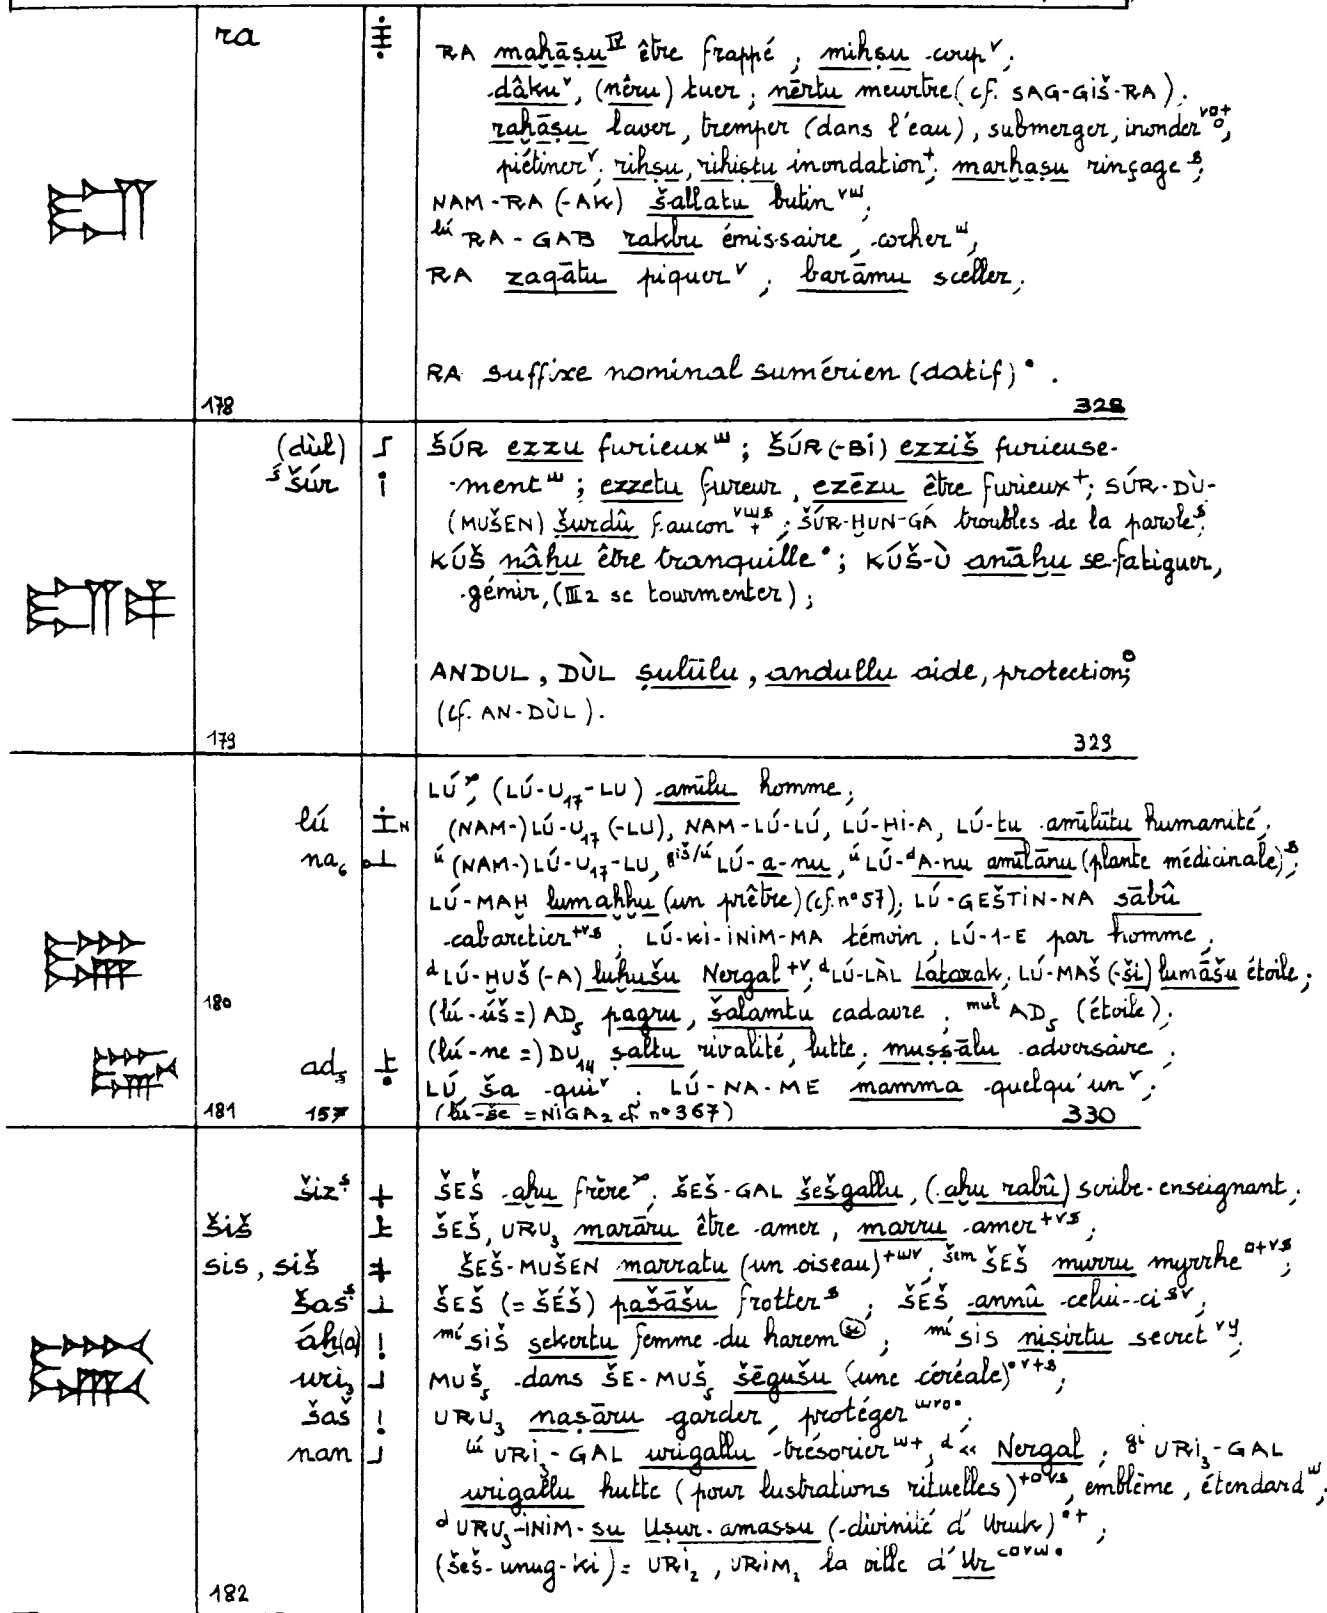 ra
RA maḫāṣu IV être frappé, miḫṣu coup v;
dâku v, (nêru) tuer; nērtu meurtre (cf. SAG-GIŠ-RA);
raḫāṣu laver, tremper (dans l'eau), submerger, inonder
piétiner v; riḫṣu, riḫiṣtu inondation +; marḫaṣu rinçage s;
NAM-RA (-AK) šallatu butin vw;
lú RA-GAB rakbu émissaire, cocher w;
RA zaqātu piquer v; barāmu sceller;
RA suffixe nominal sumérien (datif) •.
178
328
(dùl)
s šúr
ŠÚR ezzu furieux w; ŠÚR (-BI) ezziš furieuse-
ment w; ezzetu fureur, ezēzu être furieux +; SÚR-DÙ-
(MUŠEN) šurdû faucon vws+; ŠÚR-ḪUN-GÁ troubles de la parole s;
KÚŠ nâḫu être tranquille •; KÚŠ-Ù anāḫu se fatiguer,
gémir, (III2 se tourmenter);
ANDUL, DÙL ṣulūlu, andullu aide, protection o;
(cf. AN-DÙL).
179
329
lú
na₆
LÚ, (LÚ-U₁₇-LU) amīlu homme;
(NAM-)LÚ-U₁₇(-LU), NAM-LÚ-LÚ, LÚ-ḪI-A, LÚ-tu amīlūtu humanité;
ú (NAM-)LÚ-U₁₇-LU, giš/ú LÚ-a-nu, ú LÚ-d A-nu amīlānu (plante médicinale) s;
LÚ-MAḪ lumaḫḫu (un prêtre) (cf. n° 57); LÚ-GEŠTIN-NA sābû
cabaretier +vs; LÚ-KI-INIM-MA témoin; LÚ-1-E par homme;
d LÚ-ḪUŠ (-A) luḫušu Nergal +v; d LÚ-LÀL Látarak; LÚ-MAŠ (-ši) lumāšu étoile;
180
(lú-úš =) AD₅ pagru, šalamtu cadavre; mul AD₅ (étoile);
(lú-ne =) DU₁₄ ṣaltu rivalité, lutte; muṣṣālu adversaire;
ad₅
LÚ ša qui v; LÚ-NA-ME mamma quelqu'un v;
181 157
(lú-še = NIGA₂ cf. n° 367)
330
šiz s
šiš
sis, siš
šas s
áḫ(a)
uri₃
šaš
nan
ŠEŠ aḫu frère; ŠEŠ-GAL šešgallu, (aḫu rabû) scribe-enseignant;
ŠEŠ, URU₃ marāru être amer, marru amer +vs;
ŠEŠ-MUŠEN marratu (un oiseau) +wv; šem ŠEŠ murru myrrhe o+vs;
ŠEŠ (= ŠÉŠ) pašāšu frotter s; ŠÉŠ annû celui-ci sv;
mí SIŠ sekertu femme du harem (sc); mí SIS niṣirtu secret vy;
MUŠ₅ dans ŠE-MUŠ₅ šēgušu (une céréale) •v+s;
URU₃ naṣāru garder, protéger wvo•;
lú URI₃-GAL urigallu trésorier w+, d « Nergal; gi URI₃-GAL
urigallu hutte (pour lustrations rituelles) +ovs, emblème, étendard w;
d URU₃-INIM-su Uṣur-amassu (divinité d'Uruk) •+;
(šeš-unug-ki) = URI₂, URIM₂ la ville d'Ur
182